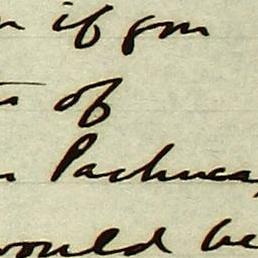 if you
of
Pachuca,
would be